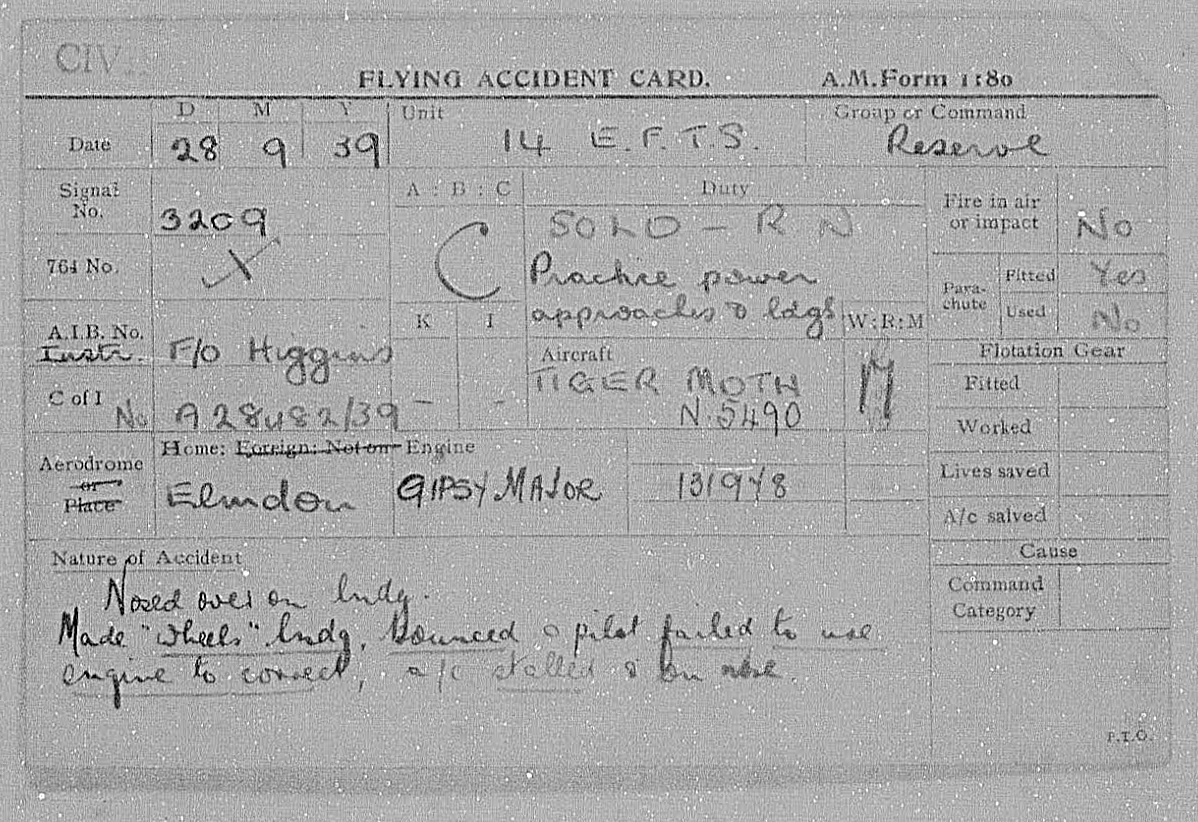 CIV.
FLYING ACCIDENT CARD. A.M.Form 1180
D M Y Unit Group or Command
Date 28 9 39 14 E.F.T.S. Reserve
Signal No. 3209
A : B : C C
Duty
SOLO - R N
Practice power
approaches & ldgs
Fire in air
or impact No
764 No. X
Para-
chute
Fitted Yes
Used No
K I W:R:M
- - M
A.I.B. No.
Instr. F/O Higgins
Aircraft
TIGER MOTH
N.5490
Flotation Gear
Fitted
Worked
Lives saved
A/c salved
C of I No A28482/39
Aerodrome
or
Place
Home: Foreign: Not on
Elmdon
Engine
GIPSY MAJOR 131948
Cause
Command
Category
Nature of Accident
Nosed over on lndg.
Made "wheels" lndg, bounced & pilot failed to use
engine to correct, a/c stalled & on nose.
P.T.O.